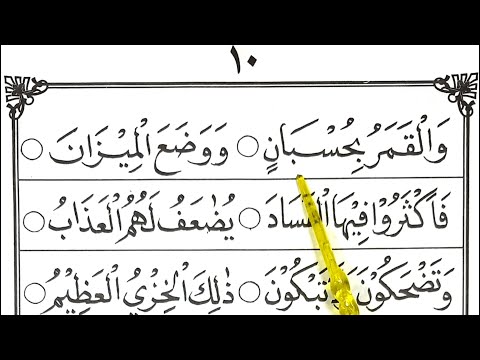 ١٠
وَالْقَمَرُ بِحُسْبَانٍ ○ وَوَضَعَ الْمِيْزَانَ ○
فَاَكْثَرُوْا فِيْهَا الْفَسَادَ ○ يُضٰعَفُ لَهُمُ الْعَذَابُ ○
وَتَضْحَكُوْنَ وَلَا تَبْكُوْنَ ○ ذٰلِكَ الْخِزْيُ الْعَظِيْمُ ○